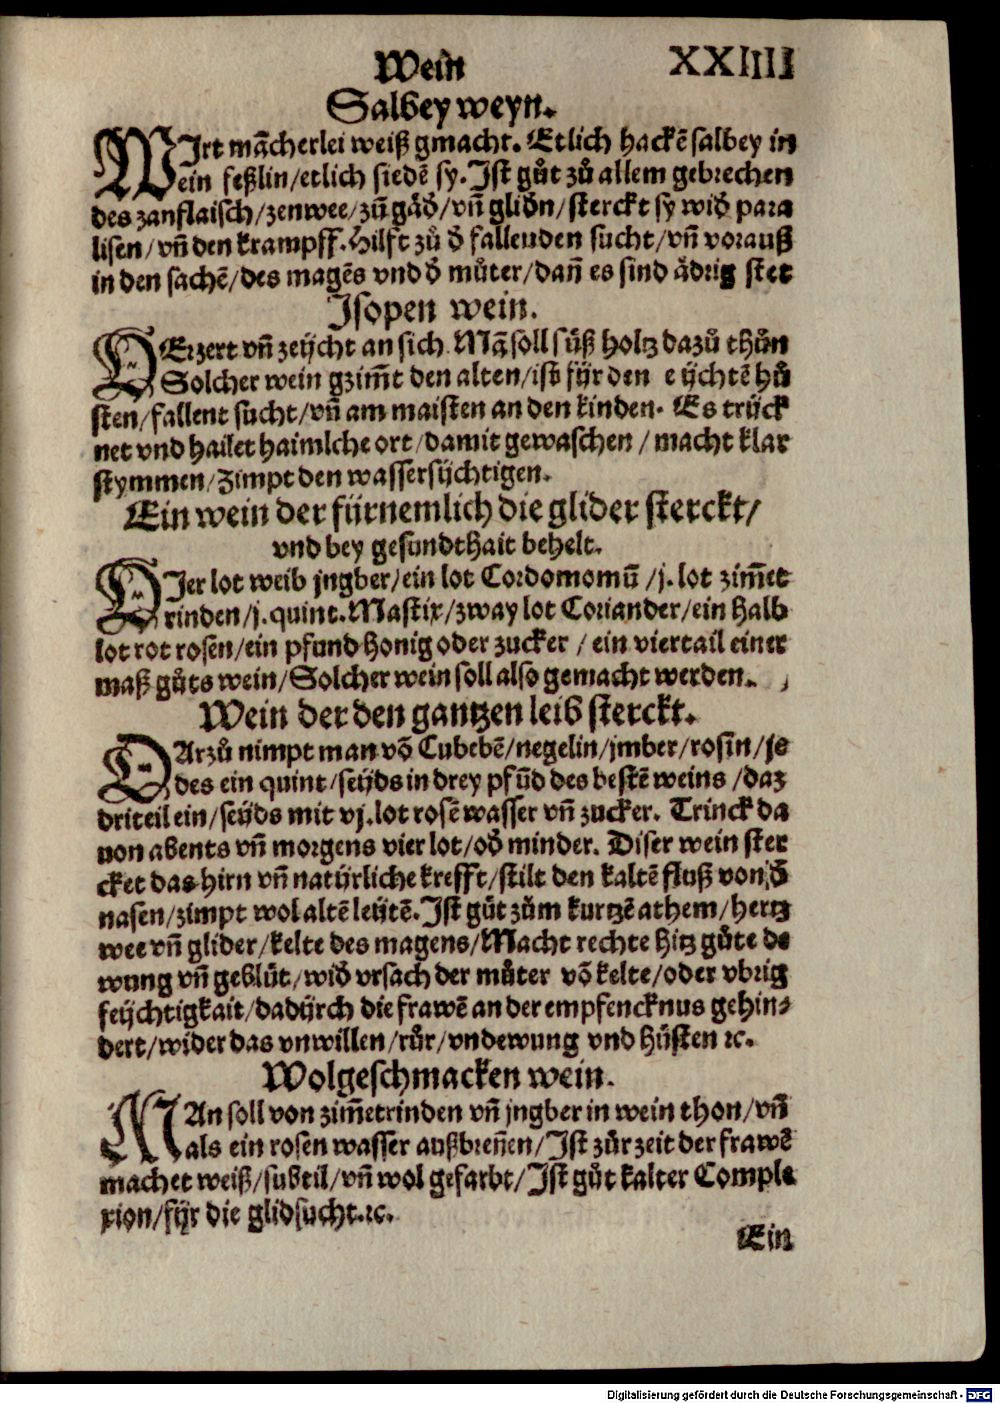 Wein XXIIII
Salbey weyn.
WIrt mācherlei weiß gmacht. Etlich hackē salbey in
wein feßlin/etlich siedē sy. Ist gůt zů allem gebrechen
des zanflaisch/zenwee/zūgāð/vn̄ gliðn/sterckt sy wið para
lisen/vn̄ den krampff. Hilft zů ð fallenden sucht/vn̄ vorauß
in den sachē/des magēs vnd ð můter/dan̄ es sind ådrig stet
Isopen wein.
DErzert vn̄ zeÿcht an sich. Mā soll sůß holtz dazů thůn
Solcher wein gzim̄t den alten/ist fÿr den eÿchtē hů
sten/fallent sucht/vn̄ am maisten an den kinden. Es trÿck
net vnd hailet haimlche ort/damit gewaschen/macht klar
stymmen/Zimpt den wassersÿchtigen.
Ein wein der fürnemlich die glider sterckt/
vnd bey gesundthait behelt.
DIer lot weib jngber/ein lot Cordomomū/j. lot zim̄et
rinden/j. quint. Mastix/zway lot Coriander/ein halb
lot rot rosen/ein pfund honig oder zucker/ein viertail einer
maß gůts wein/Solcher wein soll also gemacht werden.
Wein der den gantzen leib sterckt.
DArzů nimpt man vō Cubebē/negelin/jmber/rosin/je
des ein quint/seÿds in drey pfūd des bestē weins/daz
driteil ein/seÿds mit vj. lot rosē wasser vn̄ zucker. Trinck da
uon abents vn̄ morgens vier lot/oð minder. Diser wein ster
cket das hirn vn̄ natÿrliche krefft/stilt den kaltē fluß von ð
nasen/zimpt wol altē leÿtē. Ist gůt zům kurtzē athem/hertz
wee vn̄ glider/kelte des magens/Macht rechte hitz gůte de
wung vn̄ geblůt/wið vrsach der můter vō kelte/oder vbrig
feÿchtigkait/dadÿrch die frawē an der empfencknus gehin⸗
dert/wider das vnwillen/růr/vndewung vnd hůsten ꝛc.
Wolgeschmacken wein.
MAn soll von zim̄etrinden vn̄ jngber in wein thon/vn̄
als ein rosen wasser außbren̄en/Ist zůr zeit der frawē
machet weiß/subtil/vn̄ wol gefarbt/Ist gůt kalter Comple
xion/fÿr die glidsucht.ꝛc.
Ein
Digitalisierung gefördert durch die Deutsche Forschungsgemeinschaft - DFG